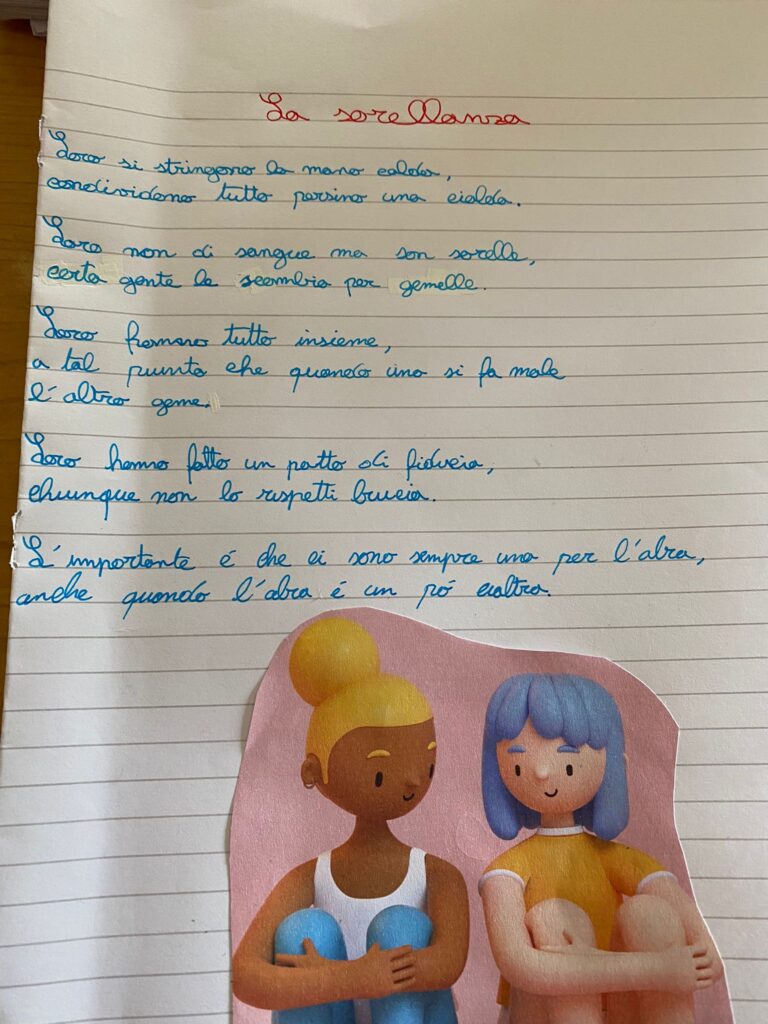 La sorellanza
Loro si stringono la mano calda,
condividono tutto persino una cialda.
Loro non di sangue ma son sorelle,
certa gente le scambia per gemelle.
Loro hanno tutto insieme,
a tal punto che quando una si fa male
l'altra geme.
Loro hanno fatto un patto di fiducia,
chiunque non lo rispetti brucia.
L'importante é che ci sono sempre una per l'altra,
anche quando l'altra é un pó scaltra.